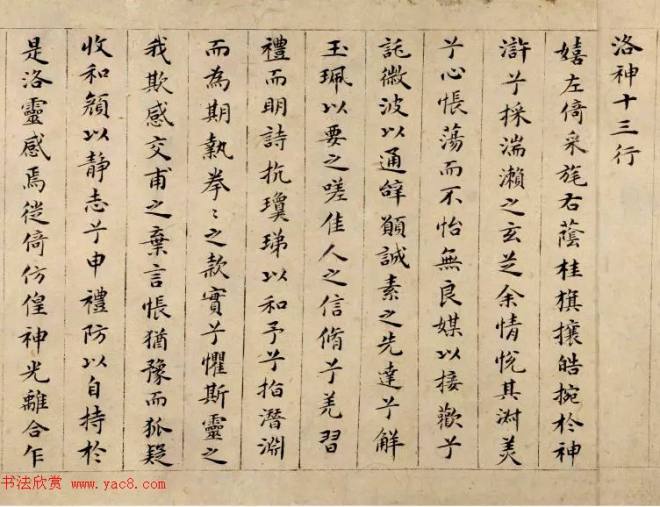 洛神十三行
嬉左倚采旄右蔭桂旗攘皓捥於神
滸兮採湍瀨之玄芝余情悅其淑美
兮心悵蕩而不怡無良媒以接歡兮
託微波以通辭願誠素之先達兮解
玉珮以要之嗟佳人之信脩兮羌習
禮而明詩抗瓊珶以和予兮指潛淵
而為期執拳〻之款實兮懼斯靈之
我欺感交甫之棄言悵猶豫而狐疑
收和顏以静志兮申禮防以自持於
是洛靈感焉徙倚仿偟神光離合乍
书法欣赏 www.yac8.com